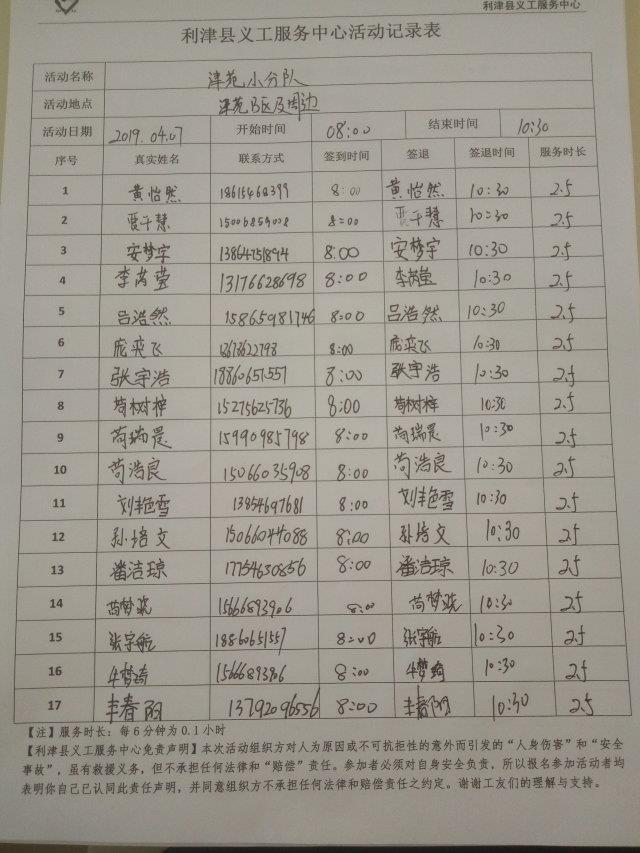 利津县义工服务中心
利津县义工服务中心活动记录表
活动名称 津苑小分队
活动地点 津苑B区及周边
活动日期 2019.04.07 开始时间 08:00 结束时间 10:30
序号 真实姓名 联系方式 签到时间 签退 签退时间 服务时长
1 黄怡然 18615468399 8:00 黄怡然 10:30 2.5
2 贾千慧 15006859008 8:00 贾千慧 10:30 2.5
3 安梦宇 13864751894 8:00 安梦宇 10:30 2.5
4 李芮莹 13176628698 8:00 李芮莹 10:30 2.5
5 吕浩然 15865981746 8:00 吕浩然 10:30 2.5
6 庞奕飞 13678622798 8:00 庞奕飞 10:30 2.5
7 张宇浩 18860651557 8:00 张宇浩 10:30 2.5
8 苟树梓 15275625736 8:00 苟树梓 10:30 2.5
9 苟瑞晨 15990985798 8:00 苟瑞晨 10:30 2.5
10 苟浩良 15066035908 8:00 苟浩良 10:30 2.5
11 刘丰色雪 13854697681 8:00 刘丰色雪 10:30 2.5
12 孙培文 15066044088 8:00 孙培文 10:30 2.5
13 潘洁琼 17754630856 8:00 潘洁琼 10:30 2.5
14 苟梦 15666893906 8:00 苟梦 10:30 2.5
15 张宇航 18860651557 8:00 张宇航 10:30 2.5
16 牛梦琦 15666893906 8:00 牛梦琦 10:30 2.5
17 丰春丽 13792096556 8:00 丰春丽 10:30 2.5
【注】服务时长：每6分钟为0.1小时
【利津县义工服务中心免责声明】本次活动组织方对人为原因或不可抗拒性的意外而引发的“人身伤害”和“安全
事故”，虽有救援义务，但不承担任何法律和“赔偿”责任。参加者必须对自身安全负责，所以报名参加活动者均
表明你自己已认同此责任声明，并同意组织方不承担任何法律和赔偿责任之约定。谢谢工友们的理解与支持。